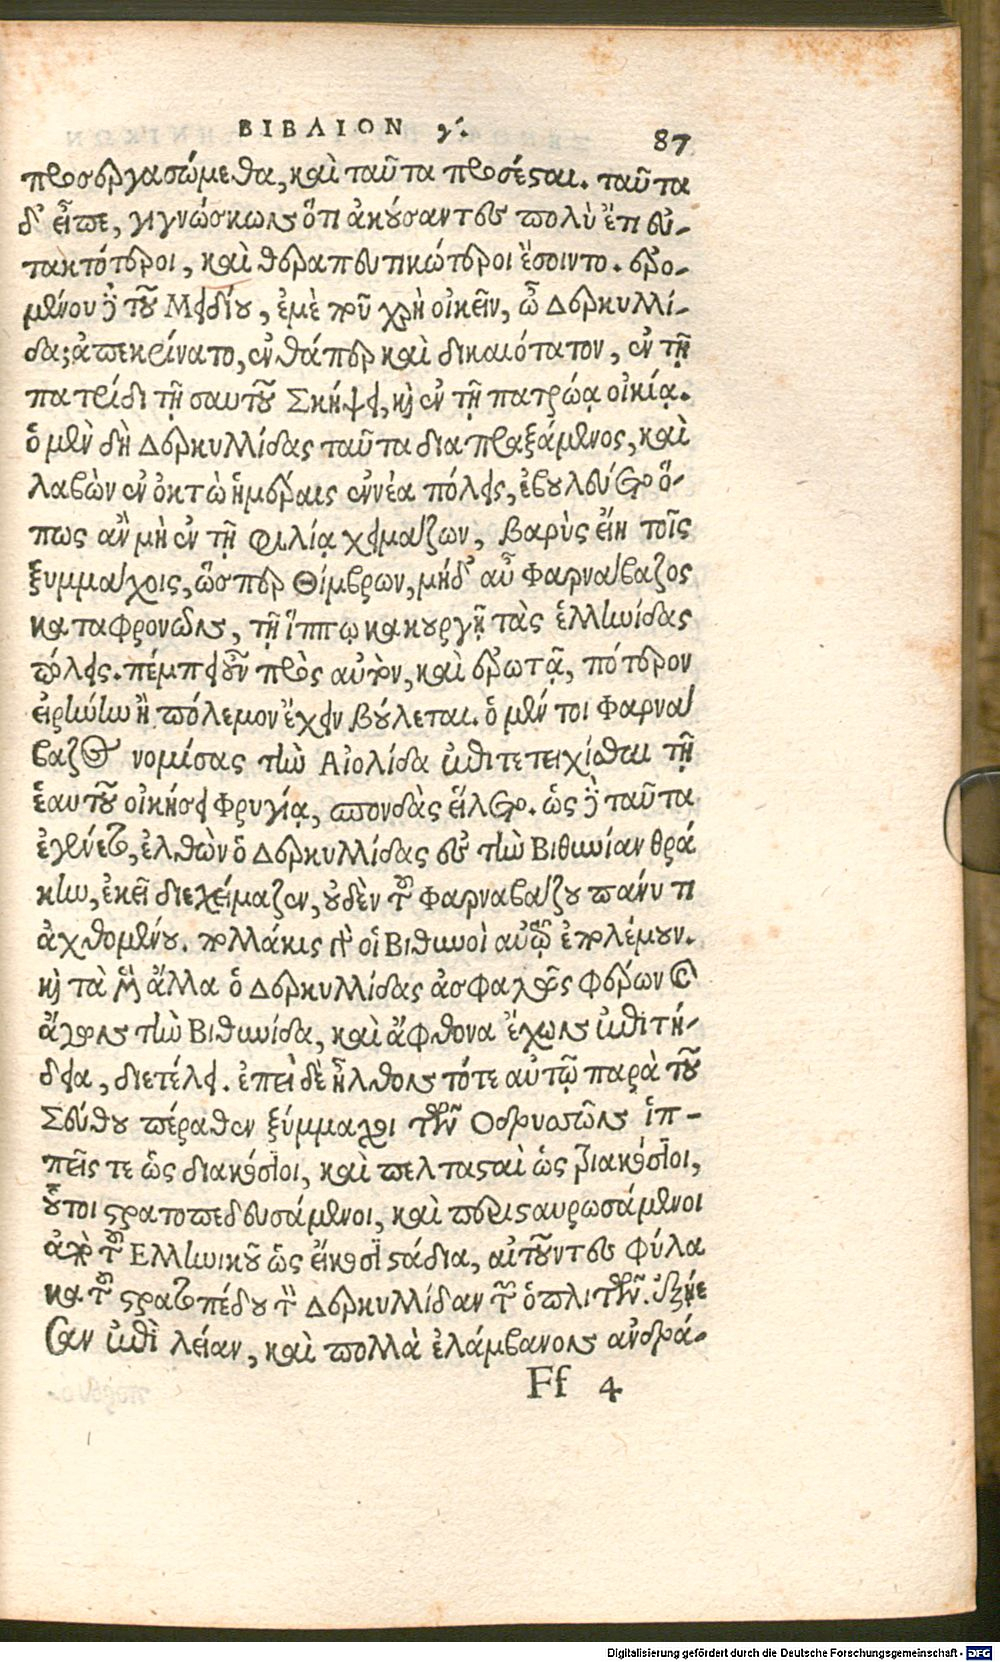 ΒΙΒΛΙΟΝ γ΄. 87
προσεργασώμεθα, καὶ ταῦτα προσέσται. ταῦτα
δ' εἶπε, γιγνώσκων ὅτι ἀκούσαντες πολὺ ἔτι εὐ-
τακτότεροι, καὶ θεραπευτικώτεροι ἔσοιντο. ἐρο-
μένου δὲ τοῦ Μειδίου, ἐμὲ ποῦ χρὴ οἰκεῖν, ὦ Δερκυλλί-
δα; ἀπεκρίνατο, ἐνθάπερ καὶ δικαιότατον, ἐν τῇ
πατρίδι τῇ σαυτοῦ Σκήψει, καὶ ἐν τῇ πατρῴᾳ οἰκίᾳ.
ὁ μὲν δὴ Δερκυλλίδας ταῦτα διαπραξάμενος, καὶ
λαβὼν ἐν ὀκτὼ ἡμέραις ἐννέα πόλεις, ἐβουλεύετο ὅ-
πως ἂν μὴ ἐν τῇ φιλίᾳ χειμάζων, βαρὺς εἴη τοῖς
ξυμμάχοις, ὥσπερ Θίμβρων, μήδ' αὖ Φαρνάβαζος
καταφρονῶν, τῇ ἵππῳ κακουργῇ τὰς ἑλληνίδας
πόλεις. πέμπει οὖν πρὸς αὐτὸν, καὶ ἐρωτᾷ, πότερον
εἰρήνην ἢ πόλεμον ἔχειν βούλεται. ὁ μέν τοι Φαρνά
βαζος νομίσας τὴν Αἰολίδα ἐπιτετειχίσθαι τῇ
ἑαυτοῦ οἰκήσει Φρυγίᾳ, σπονδὰς εἵλετο. ὡς δὲ ταῦτα
ἐγένετο, ἐλθὼν ὁ Δερκυλλίδας εἰς τὴν Βιθυνίαν θρᾴ
κην, ἐκεῖ διεχείμαζεν, οὐδὲν τοῦ Φαρναβάζου πάνυ τι
ἀχθομένου. πολλάκις γὰρ οἱ Βιθυνοὶ αὐτῷ ἐπολέμουν.
καὶ τὰ μὲν ἄλλα ὁ Δερκυλλίδας ἀσφαλῶς φέρων καὶ
ἄγων τὴν Βιθυνίδα, καὶ ἄφθονα ἔχων ἐπιτή-
δεια, διετέλει. ἐπεὶ δὲ ἦλθον τότε αὐτῷ παρὰ τοῦ
Σεύθου πέραθεν ξύμμαχοι τῶν Οδρυσῶν ἱπ-
πεῖς τε ὡς διακόσιοι, καὶ πελτασταὶ ὡς τριακόσιοι,
οὗτοι στρατοπεδευσάμενοι, καὶ περισταυρωσάμενοι
ἀπὸ τοῦ Ελληνικοῦ ὡς εἴκοσι στάδια, αἰτοῦντες φύλα
κας τοῦ στρατοπέδου τὸν Δερκυλλίδαν τῶν ὁπλιτῶν. ἐξῄε
σαν ἐπὶ λείαν, καὶ πολλὰ ἐλάμβανον ἀνδρά-
Ff 4
Digitalisierung gefördert durch die Deutsche Forschungsgemeinschaft - DFG